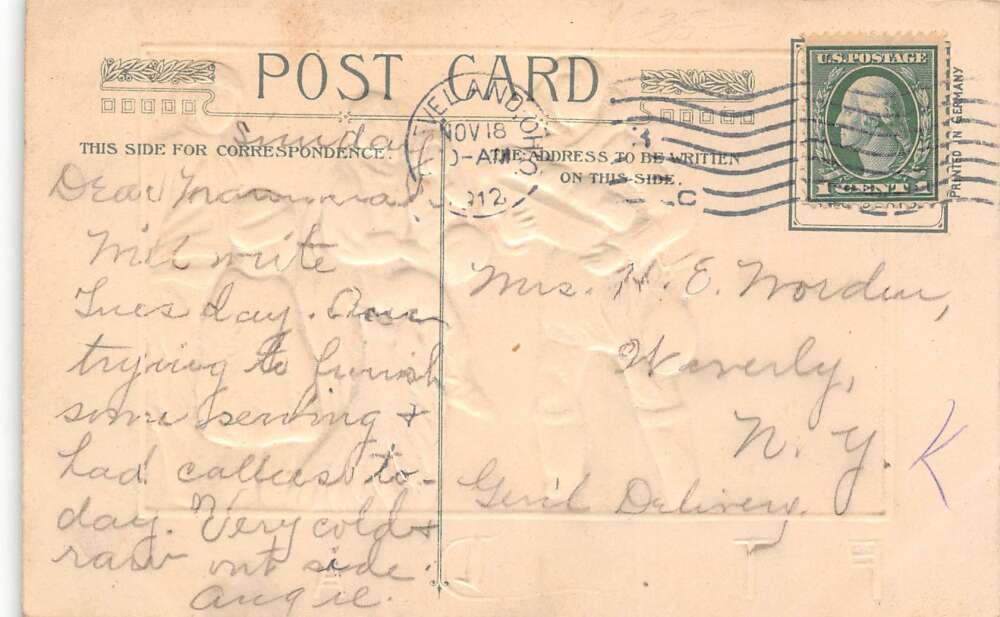 POST CARD
THIS SIDE FOR CORRESPONDENCE.
THE ADDRESS TO BE WRITTEN
ON THIS SIDE.
CLEVELAND, OHIO
NOV 18
-AM
1912
U.S. POSTAGE
1 CENT 1
PRINTED IN GERMANY
Sunday
Dear Mamma
Will write
Tuesday. Am
trying to finish
some sewing &
had callers to-
day. Very cold &
raw out side.
Angie.
Mrs. H. E. Worden,
Waverly,
N. Y.
Gen'l Delivery.
K